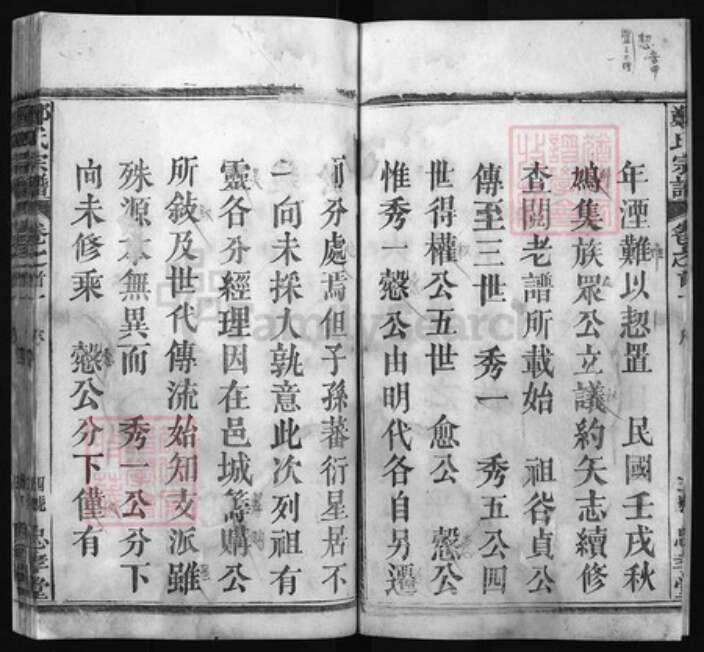 年湮難以恝置 民國壬戌秋
鳩集族眾公立議約矢志續修
查閱老譜所載始 祖谷貞公
傳至三世 秀一 秀五公四
世得權公五世 愈公 愨公
惟秀一愨公由明代各自另遷
而分處焉但子孫蕃衍星居不
一向未採人孰意此次列祖有
靈各分經理因在邑城籌購公
所敍及世代傳流始知支派雖
殊源本無異而 秀一公分下
向未修乘 愨公分下僅有
鄭氏宗譜 卷之首
鄭氏宗譜 卷之首
忠孝堂
忠孝堂
FamilySearch